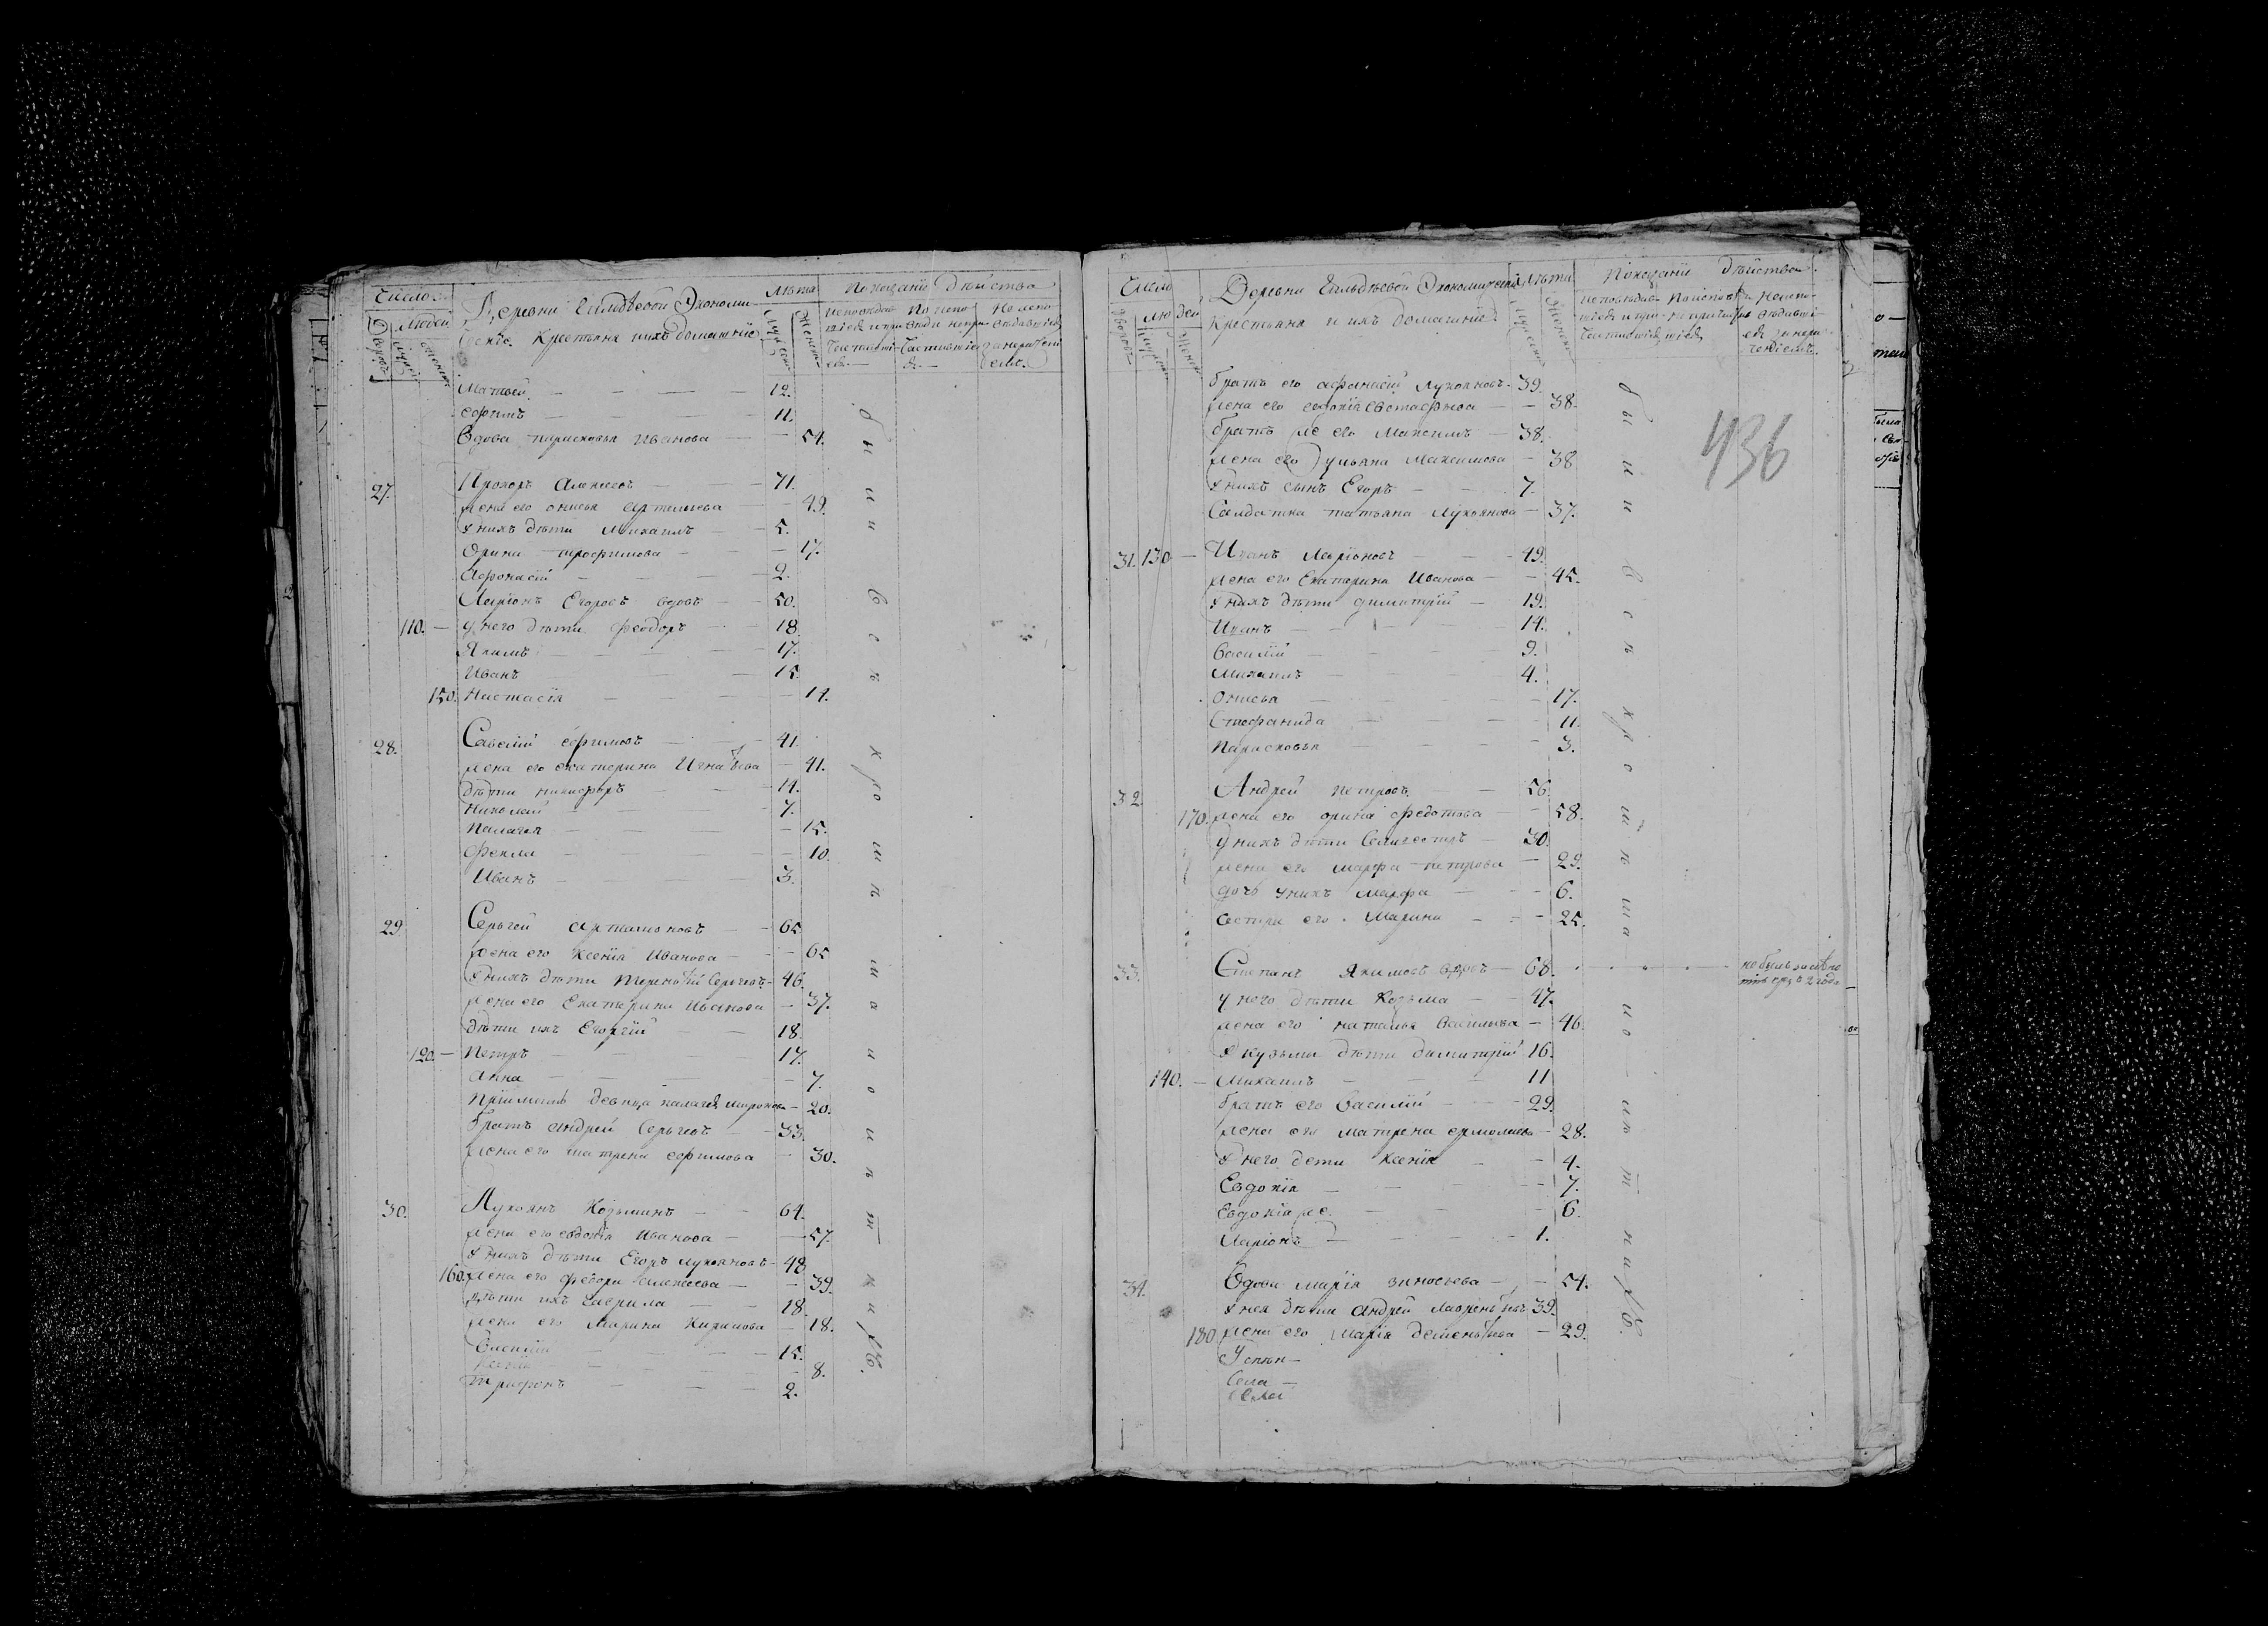 Число
Людей
Деревни Гильдѣевой Экономи
ческіе Крестьяна ихъ домашніе
Лѣта
Показаніе дѣйства
Матвей — 12.
Ефимъ — 11.
Вдова Парасковья Иванова — 54.
27. Прохоръ Алексеевъ — 71.
жена его Онисья Артемьева — 49.
у нихъ дѣти Михаилъ — 5.
Орина Трофимова — 17.
Афонасій — 2.
Ларіонъ Егоровъ вдовъ — 50.
110. — у него дѣти Феодоръ — 18.
Якимъ — 17.
Иванъ — 15.
150. Настасія — 14.
28. Савелій Ефимовъ — 41.
жена его Екатерина Игнатьева — 41.
дѣти Никифоръ — 14.
Николай — 7.
Пелагея — 15.
Фекла — 10.
Иванъ — 3.
29. Сергей Артамоновъ — 65
жена его Ксенія Иванова — 65
у нихъ дѣти Терентій Сергеевъ — 46.
жена его Екатерина Иванова — 37.
дѣти ихъ Егоргій — 18.
120. — Петръ — 17.
Анна — 7.
Пріимышъ девица Палагея Миронова — 20.
братъ Андрей Сергеевъ — 33.
жена его Матрена Ефимова — 30.
30. Лукоянъ Козьминъ — 64.
жена его Евдокія Иванова — 57.
у нихъ дѣти Егоръ Лукояновъ — 48.
160. жена его Федора Алексеева — 39.
дѣти ихъ Гаврила — 18.
жена его Марина Кирилова — 18.
Василій — 15.
8.
Трифонъ — 2.
были всѣ крошѣ шаиоиѣтнихъ.
Число
Людей
Деревни Гильдѣевой Экономическія
Крестьяна и ихъ домашніе
Лѣта
Показаніе дѣйства.
436
братъ его Афанасій Лукояновъ — 39.
жена его Евдокія Евстафьева — 38.
братъ же его Максимъ — 38.
жена его Ульяна Максимова — 38
у нихъ сынъ Егоръ — 7.
Салдатка Татьяна Лукоянова — 37.
31. 130 — Иванъ Ларіоновъ — 49.
жена его Екатерина Иванова — 45.
у нихъ дѣти Димитрій — 19.
Иванъ — 14.
Василій — 9.
Михаилъ — 4.
Онисья — 17.
Стефанида — 11.
Парасковья — 3.
32. Андрей Петровъ — 56.
170. жена его Орина Федотова — 58.
у нихъ дѣти Селивестръ — 30.
жена его Марфа Петрова — 29.
дочь у нихъ Марфа — 6.
сестра его Марина — 25.
33. Степанъ Якимовъ вдовъ — 68.
у него дѣти Козьма — 47.
жена его Наталья Васильева — 46.
у Кузьмы дѣти Димитрій 16.
140. — Михаилъ — 11
братъ его Василій — 29.
жена его Матрена Ермолаева — 28.
у него дети Ксенія — 4.
Евдокія — 7.
Евдокія же — 6.
Ларіонъ — 1.
34. Вдова Марія Зиновьева — 54.
у нея дѣти Андрей Лаврентьевъ 39.
180. жена его Марія Дементьева — 29.
Успен—
села —